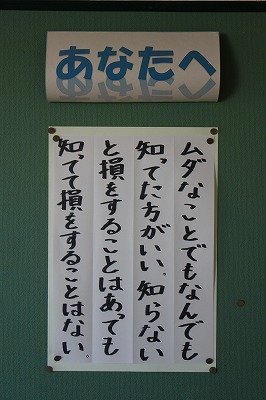 あなたへ
ムダなことでもなんでも
知ってた方がいい。知らない
と損をすることはあっても
知ってて損をすることはない。